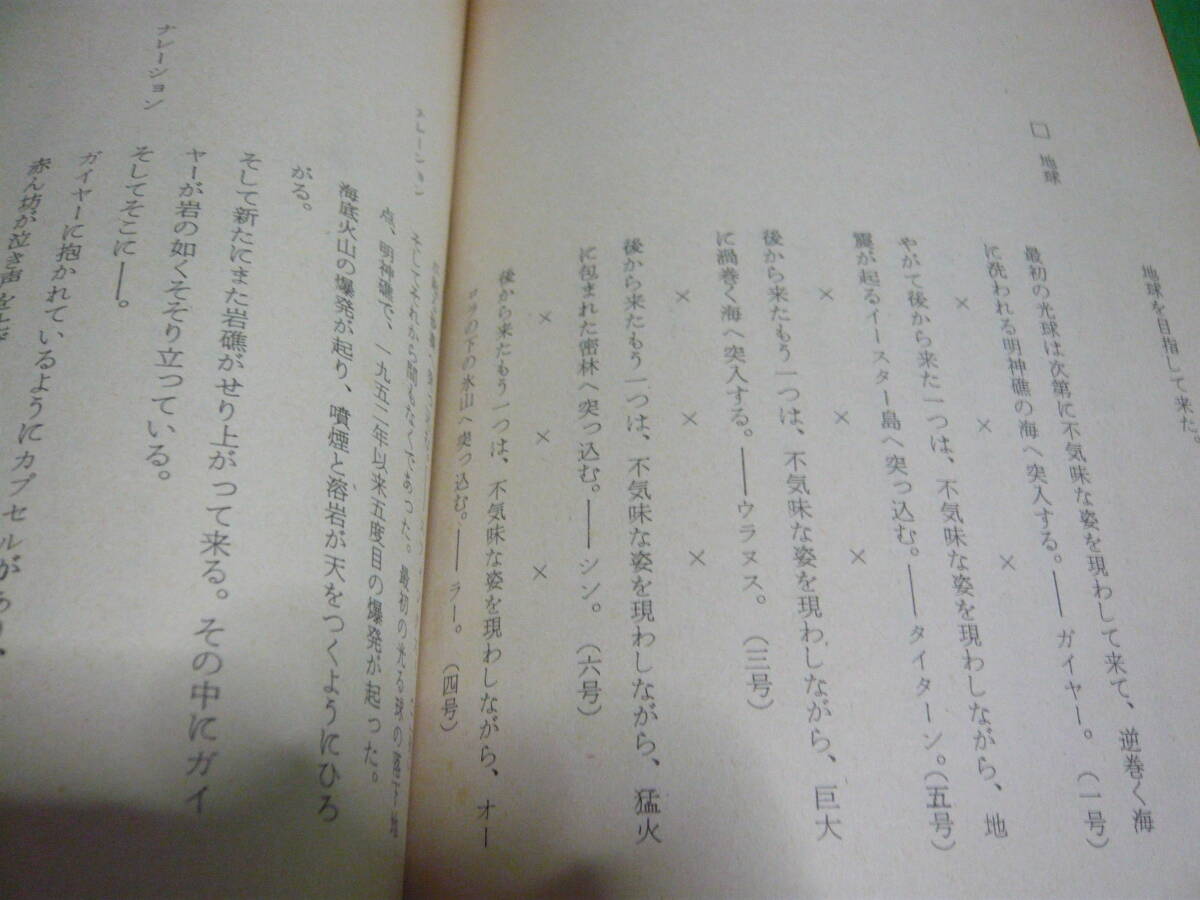 地球を目指して来た。
□ 地球
最初の光球は次第に不気味な姿を現わして来て、逆巻く海
に洗われる明神礁の海へ突入する。――ガイヤー。（一号）
× × ×
やがて後から来た一つは、不気味な姿を現わしながら、地
震が起るイースター島へ突っ込む。――タイターン。（五号）
× × ×
後から来たもう一つは、不気味な姿を現わしながら、巨大
に渦巻く海へ突入する。――ウラヌス。（三号）
× × ×
後から来たもう一つは、不気味な姿を現わしながら、猛火
に包まれた密林へ突っ込む。――シン。（六号）
× × ×
後から来たもう一つは、不気味な姿を現わしながら、オー
ロラの下の氷山へ突っ込む。――ラー。（四号）
ナレーション
そしてそれから間もなくであった。最初の光る球の落下地
点、明神礁で、一九五二年以来五度目の爆発が起った。
海底火山の爆発が起り、噴煙と溶岩が天をつくようにひろ
がる。
そして新たにまた岩礁がせり上がって来る。その中にガイ
ヤーが岩の如くそそり立っている。
そしてそこに――。
ナレーション
ガイヤーに抱かれているようにカプセルがあり、
赤ん坊が泣き声を